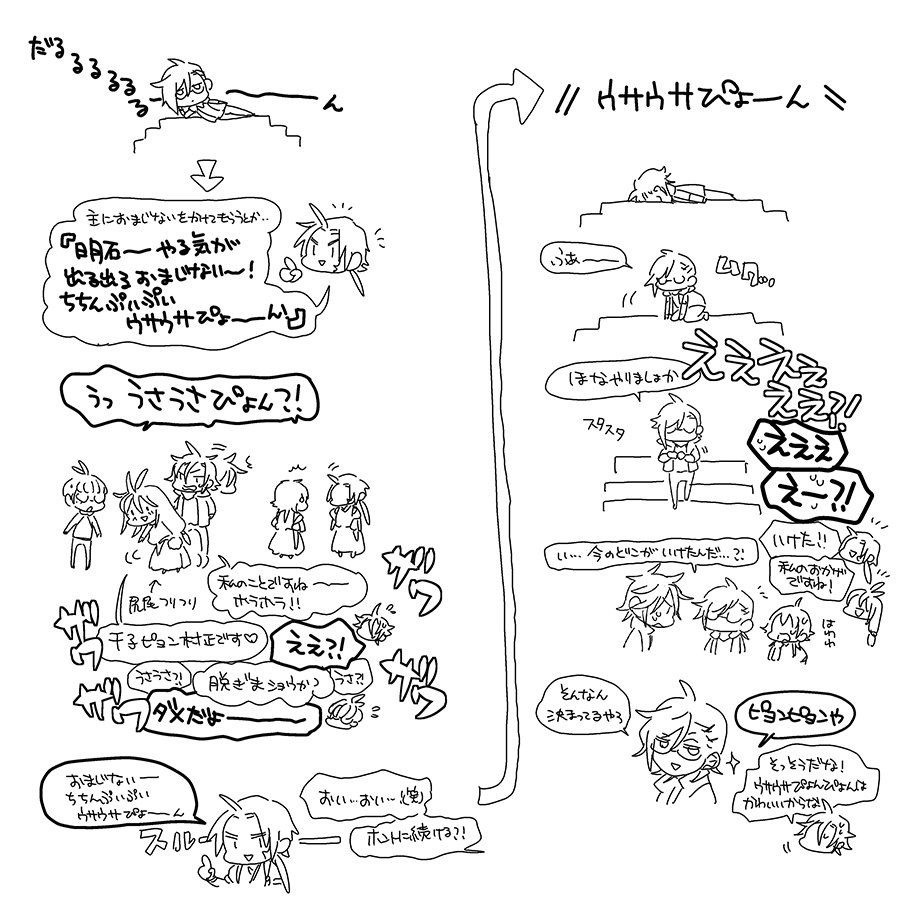 だる
るるるる
る
ーーーん
主におまじないをかけてもらうとか..
『明石〜 やる気が
出る出るおまじない〜!
ちちんぷいぷい
ウサウサぴょーーん』
うっ うさうさぴょん?!
私のことですねーーー
ホラホラ!!
ザワ
尻尾フリフリ
ザワ
千子ピョン村正です♡
ええ?!
うさうさ?!
脱ぎまショウか?
うさ?!
ザワ
ザワ
ダメだよーーーー
おまじないー
ちちんぷいぷい
ウサウサぴょーーん
スルー
おい…おい…
ホントに続ける?!
\\ ウサウサぴょーーん //
ふあーー
ほなやりましょか
スタスタ
ええええ
ええ?!
えええ
えー?!
いけた!!
い… 今のどこがいけたんだ…?!
私のおかげ
ですね!
はわわ
そんなん
決まってるやろ
ピョンピョンや
そっそうだな!
ウサウサぴょんぴょんは
かわいいからな!